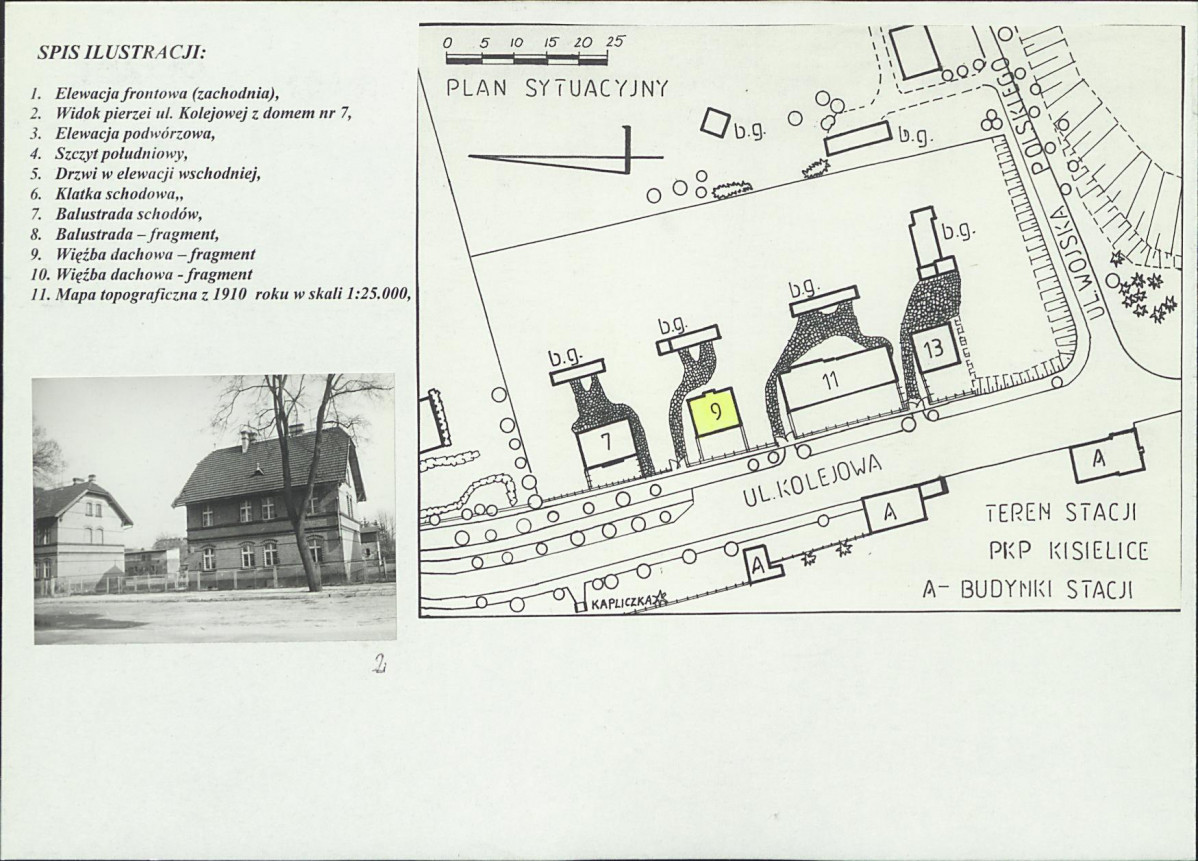 SPIS ILUSTRACJI:
1. Elewacja frontowa (zachodnia),
2. Widok pierzei ul. Kolejowej z domem nr 7,
3. Elewacja podwórzowa,
4. Szczyt południowy,
5. Drzwi w elewacji wschodniej,
6. Klatka schodowa,,
7. Balustrada schodów,
8. Balustrada – fragment,
9. Więźba dachowa – fragment
10. Więźba dachowa - fragment
11. Mapa topograficzna z 1910 roku w skali 1:25.000,
2
0 5 10 15 20 25
PLAN SYTUACYJNY
b.g.
b.g.
b.g.
b.g.
b.g.
b.g.
7
9
11
13
UL. WOJSKA POLSKIEGO
UL. KOLEJOWA
A
A
A
KAPLICZKA
TEREN STACJI
PKP KISIELICE
A- BUDYNKI STACJI